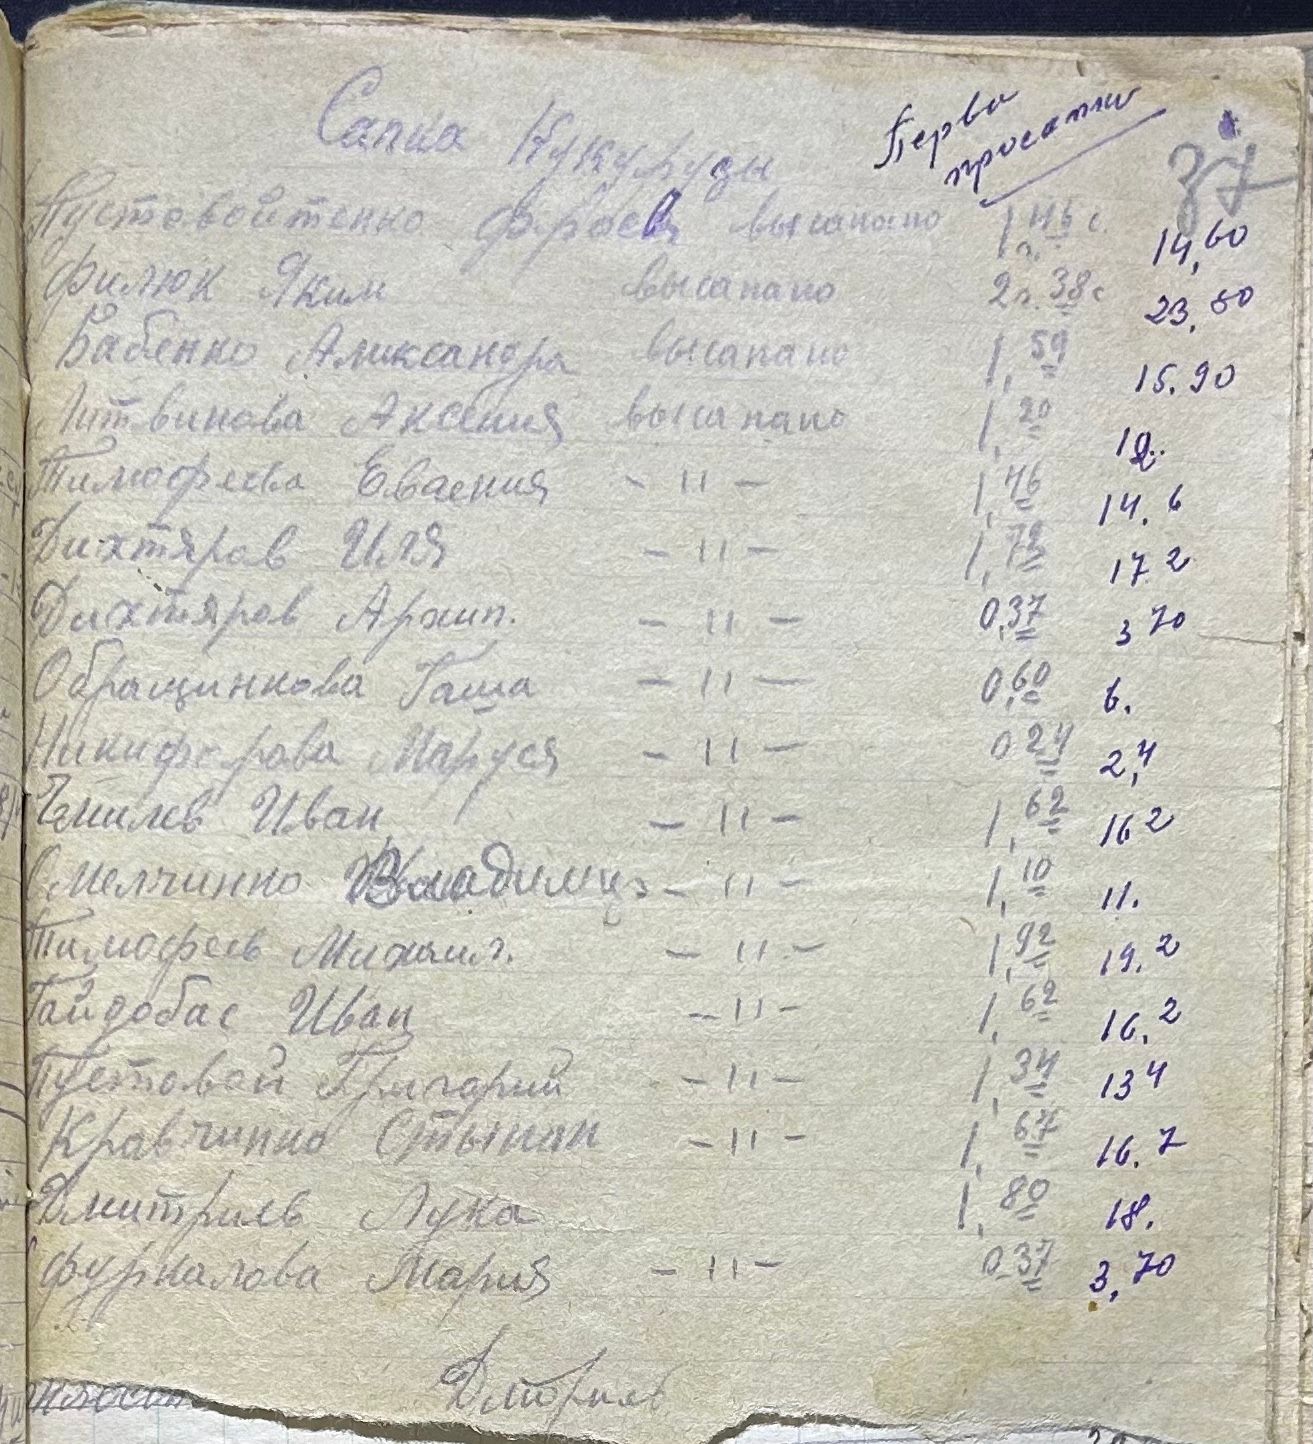 Сапка Кукурузы Перва просапка 37
Пустовойтенко высапано 1,46 с 14,60
Филюк Яким высапано 2 г. 38 с 23,80
Бабенко Аликсандра высапано 1,59 15.90
Литвинова Аксения высапано 1,20 12.
Тимофеева Евдения -"- 1,46 14.6
Дихтяров Иля -"- 1,72 17 2
Дихтяров Архип. -"- 0,37 3 70
Обращинкова Гаша -"- 0,60 6.
Никифорова Маруся -"- 0 24 2,4
Емилев Иван -"- 1,62 16 2
Омелчинко Владимир -"- 1,10 11.
Тимофеев Михаил. -"- 1,92 19.2
Гайдобас Иван -"- 1,62 16.2
Пустовой Григорий -"- 1,34 13 4
Кравчинко Стыпан -"- 1,67 16.7
Дмитриев Лука 1,80 18.
Фуркалова Мария -"- 0-37 3,70